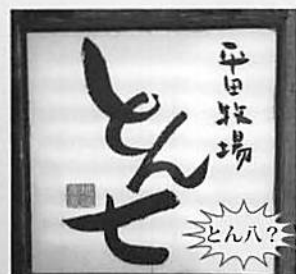 平田牧場
とん七
とん八？